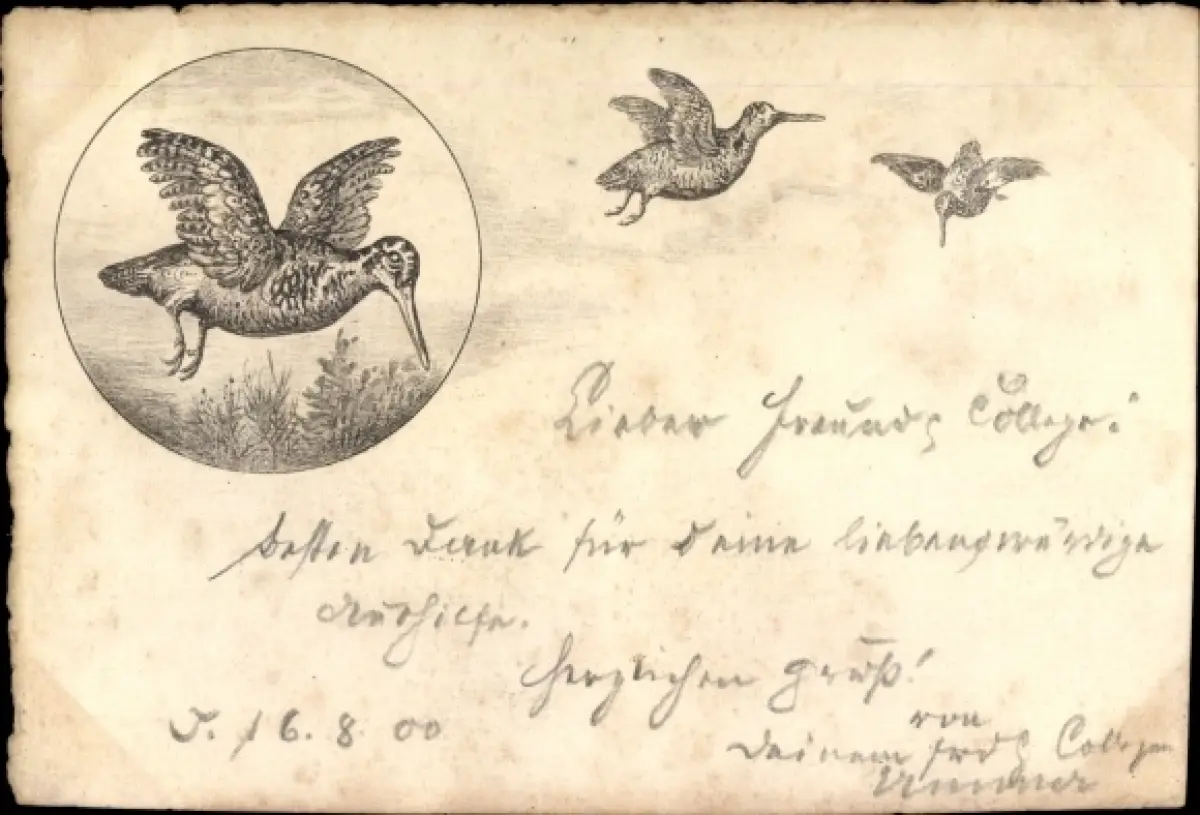 Lieber Freund & College!
besten Dank für deine liebenswürdige
Aushilfe.
Herzlichen Gruß!
T. 16. 8. 00
von
Deinem Frd & Collegen